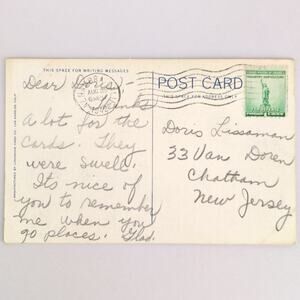 THIS SPACE FOR WRITING MESSAGES
POST CARD
Dear Doris:-
Thanks
A lot for the
cards. They
were swell.
Its nice of
you to remember
me when you
go places. Glad.
Doris Lissaman
33 Van Doren
Chatham
New Jersey